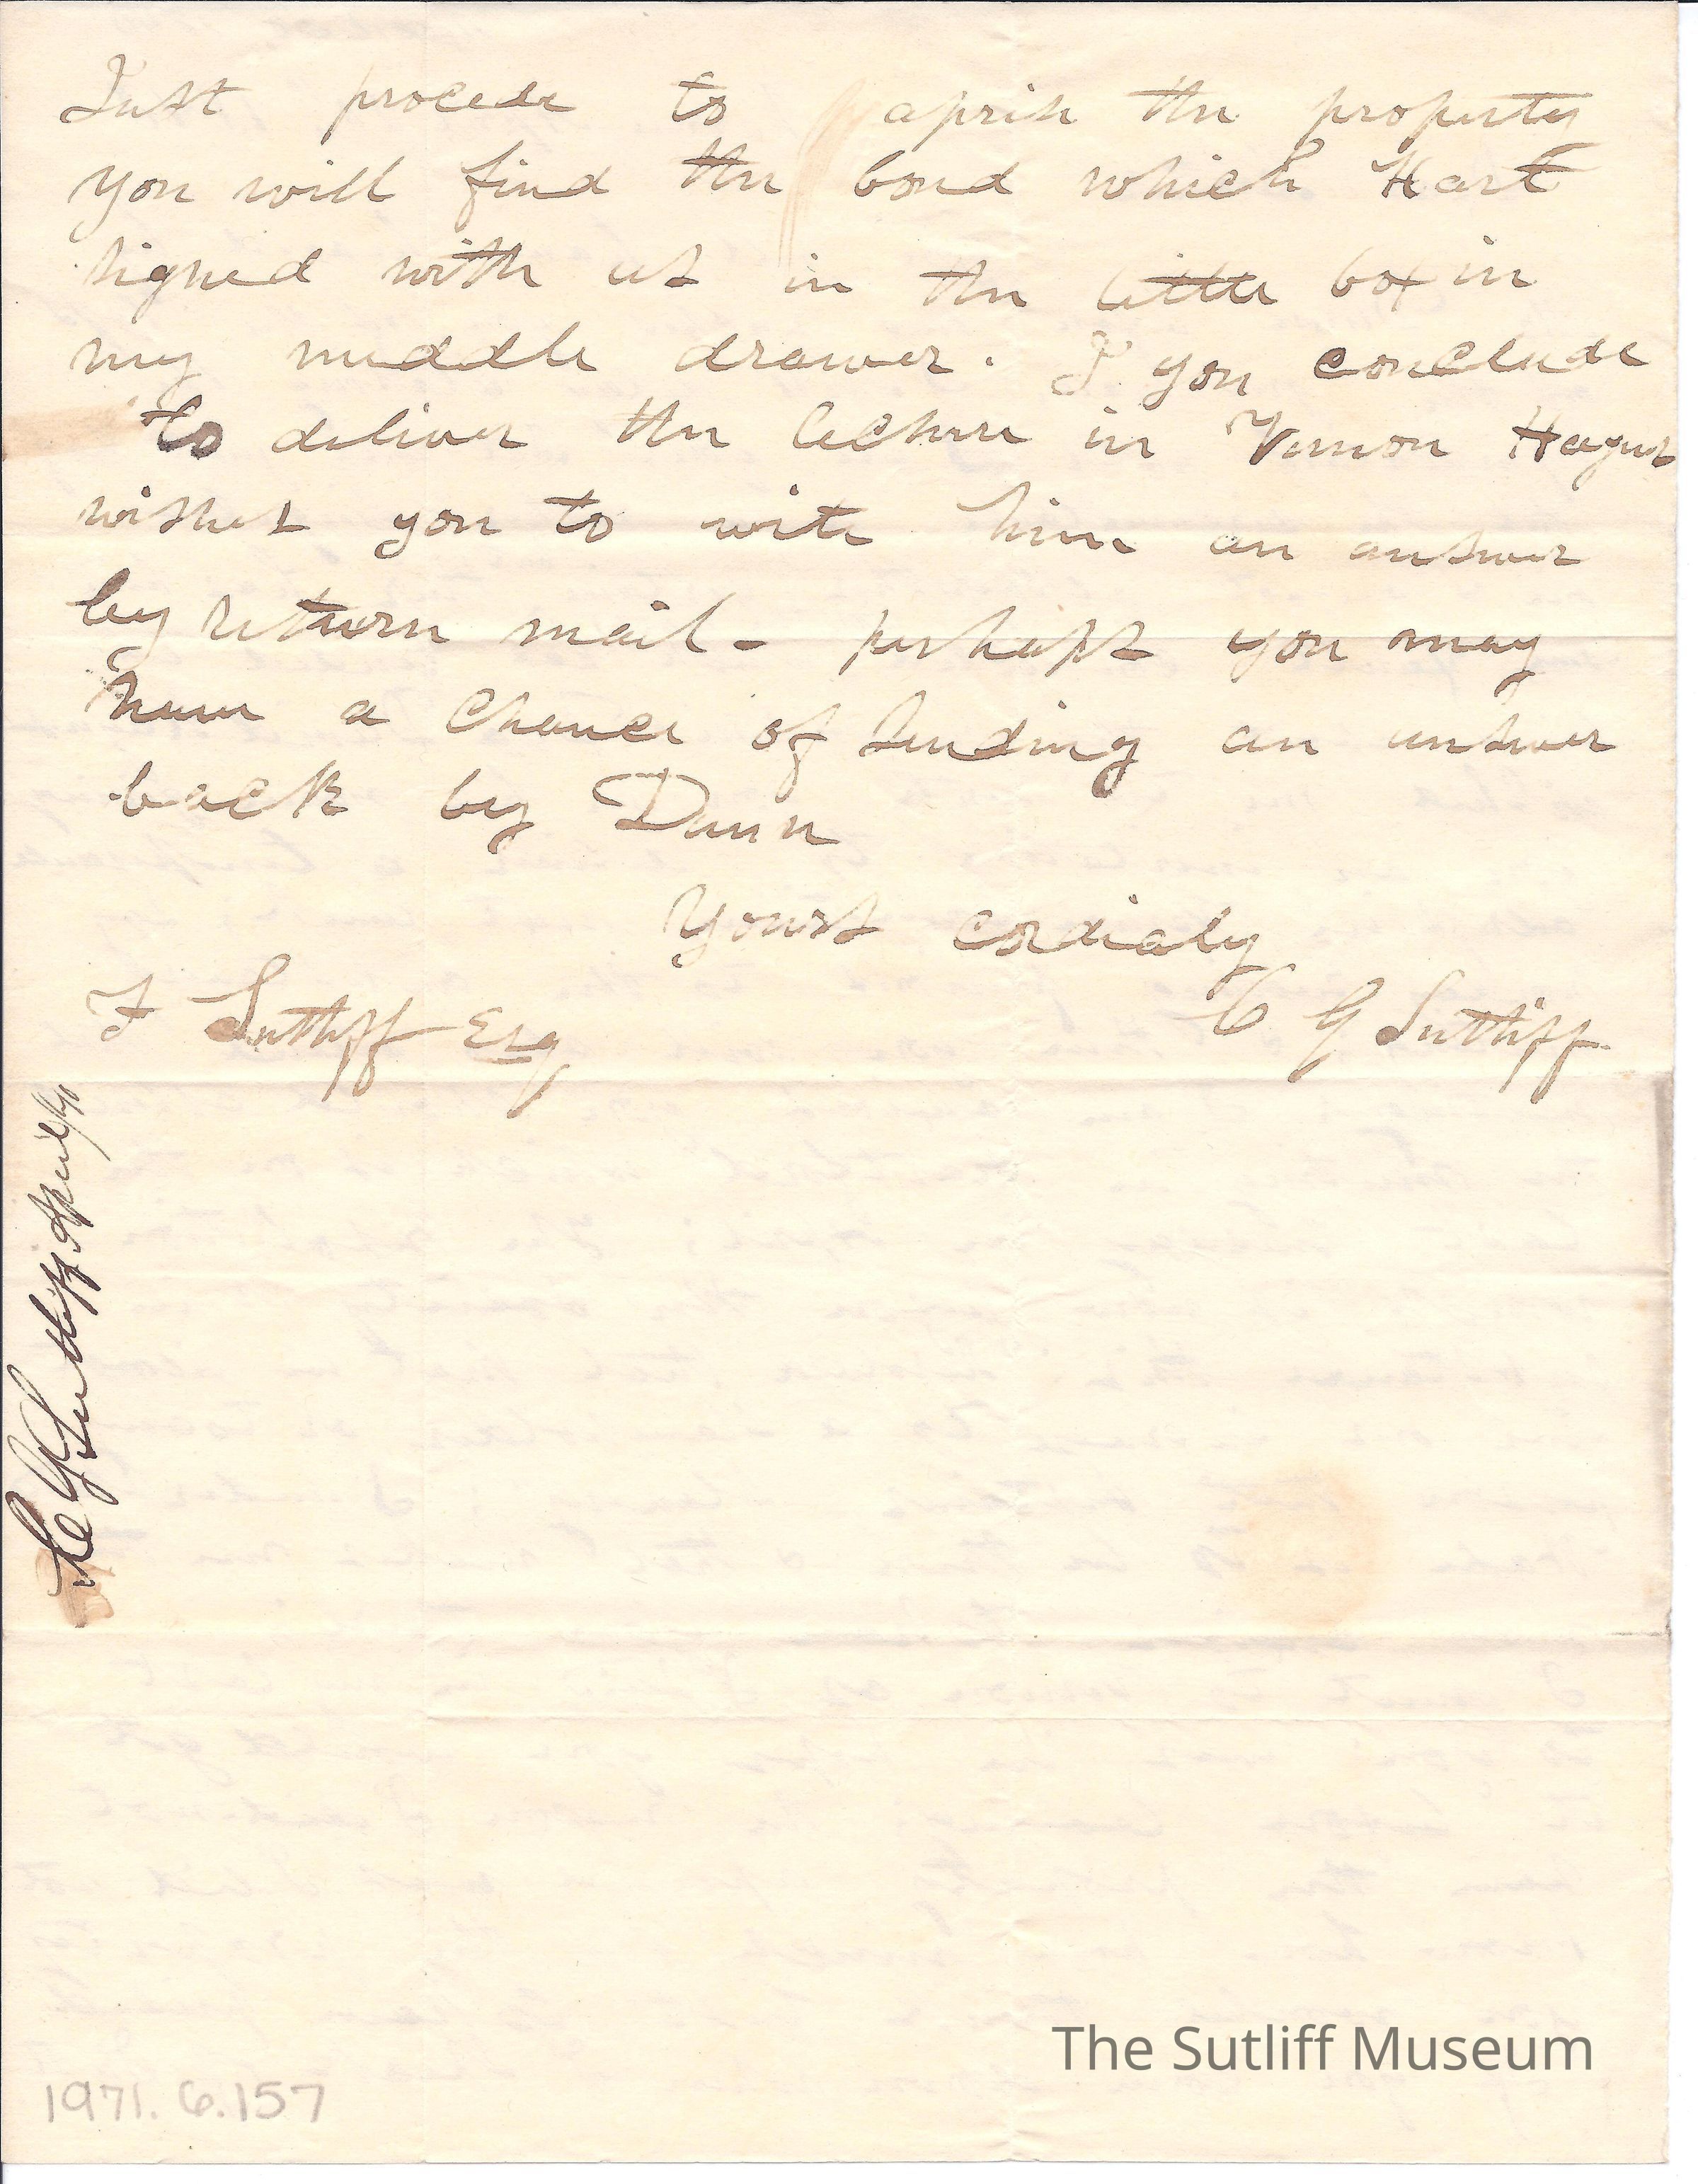 Just procede to aprise the property
you will find the bond which Hart
signed with us in the little box in
my middle drawer. I you conclude
to deliver the lecture in Vernon Hayes
wishes you to write him an answer
by return mail - perhaps you may
have a chance of sending an answer
back by Dunn
Yours cordialy
C G Sutliff
F Sutliff Esq
C G Sutliff April
The Sutliff Museum
1971.6.157